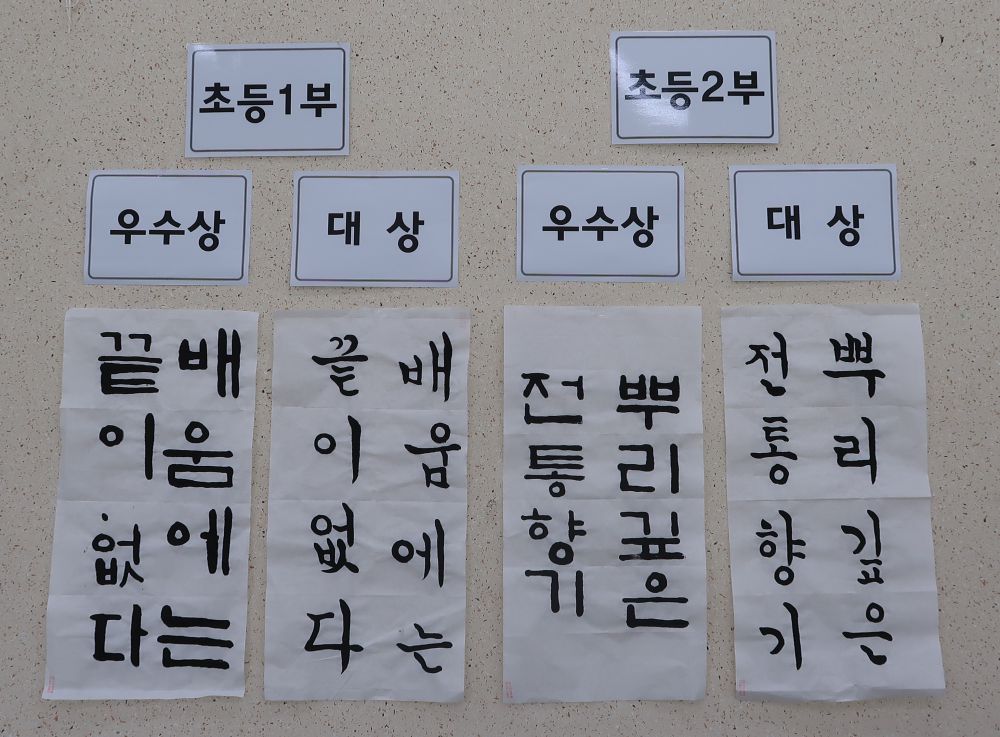 초등1부
초등2부
우수상
대 상
우수상
대 상
배움에는
끝이없다
배움에는
끝이없다
뿌리깊은
전통향기
뿌리깊은
전통향기